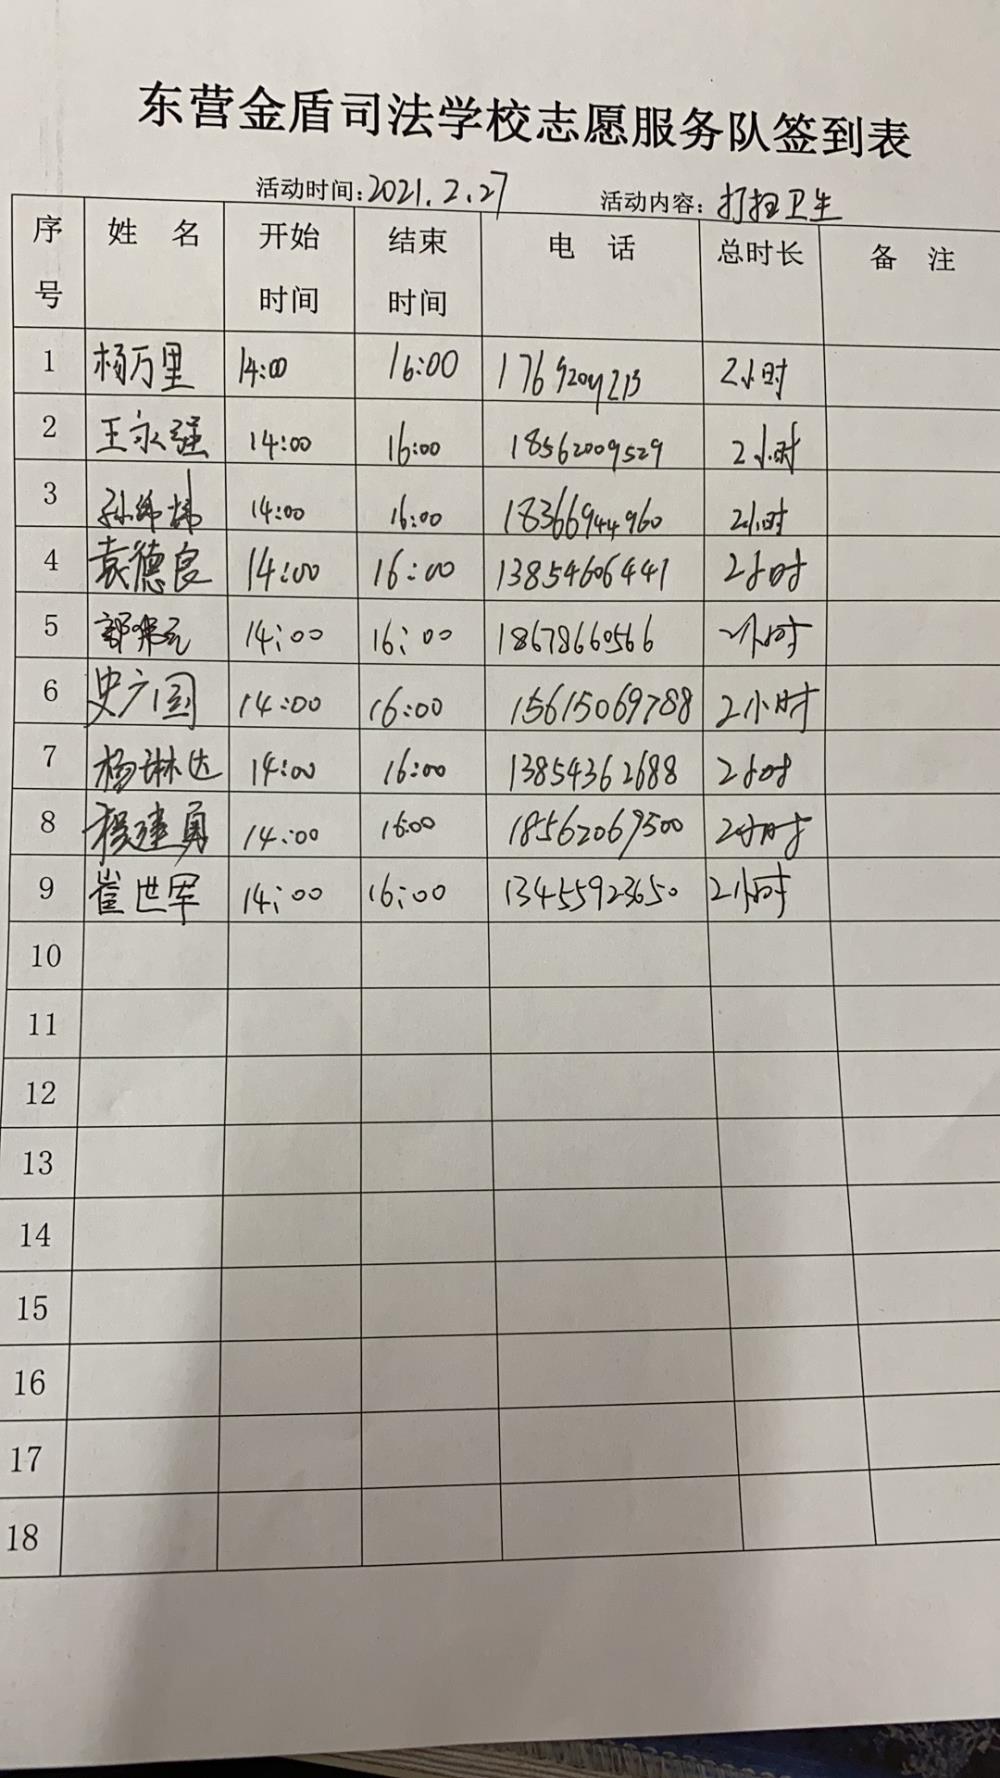 东营金盾司法学校志愿服务队签到表
活动时间:2021.2.27 活动内容:打扫卫生
序号 姓名 开始时间 结束时间 电话 总时长 备注
1 杨万里 14:00 16:00 2小时
2 王永强 14:00 16:00 18562009529 2小时
3 14:00 16:00 18366944960 2小时
4 袁德良 14:00 16:00 13854606441 2小时
5 14:00 16:00 18678660566 2小时
6 史广国 14:00 16:00 15615069788 2小时
7 杨琳达 14:00 16:00 13854362688 2小时
8 程建勇 14:00 16:00 18562069500 2小时
9 崔世军 14:00 16:00 13455923650 2小时
10
11
12
13
14
15
16
17
18